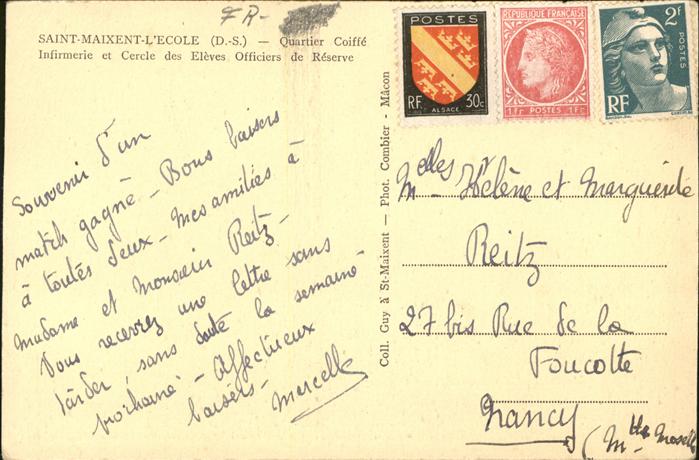 FR-
SAINT-MAIXENT-L'ECOLE (D.-S.) — Quartier Coiffé
Infirmerie et Cercle des Elèves Officiers de Réserve
Souvenir d'un
match gagné - Bons baisers
à toutes deux - Mes amitiés à
Madame et Monsieur Reitz -
Vous recevrez une lettre sans
tarder, sans doute la semaine
prochaine - Affectueux
baisers - Marcelle
Coll. Guy à St-Maixent — Phot. Combier - Mâcon
POSTES
RF 30c
ALSACE
REPUBLIQUE FRANÇAISE
1Fr POSTES 1Fr
2F
POSTES
RF
Melles Hélène et Marguerite
Reitz
27 bis Rue de la
Foucotte
Nancy
(Mthe Moselle